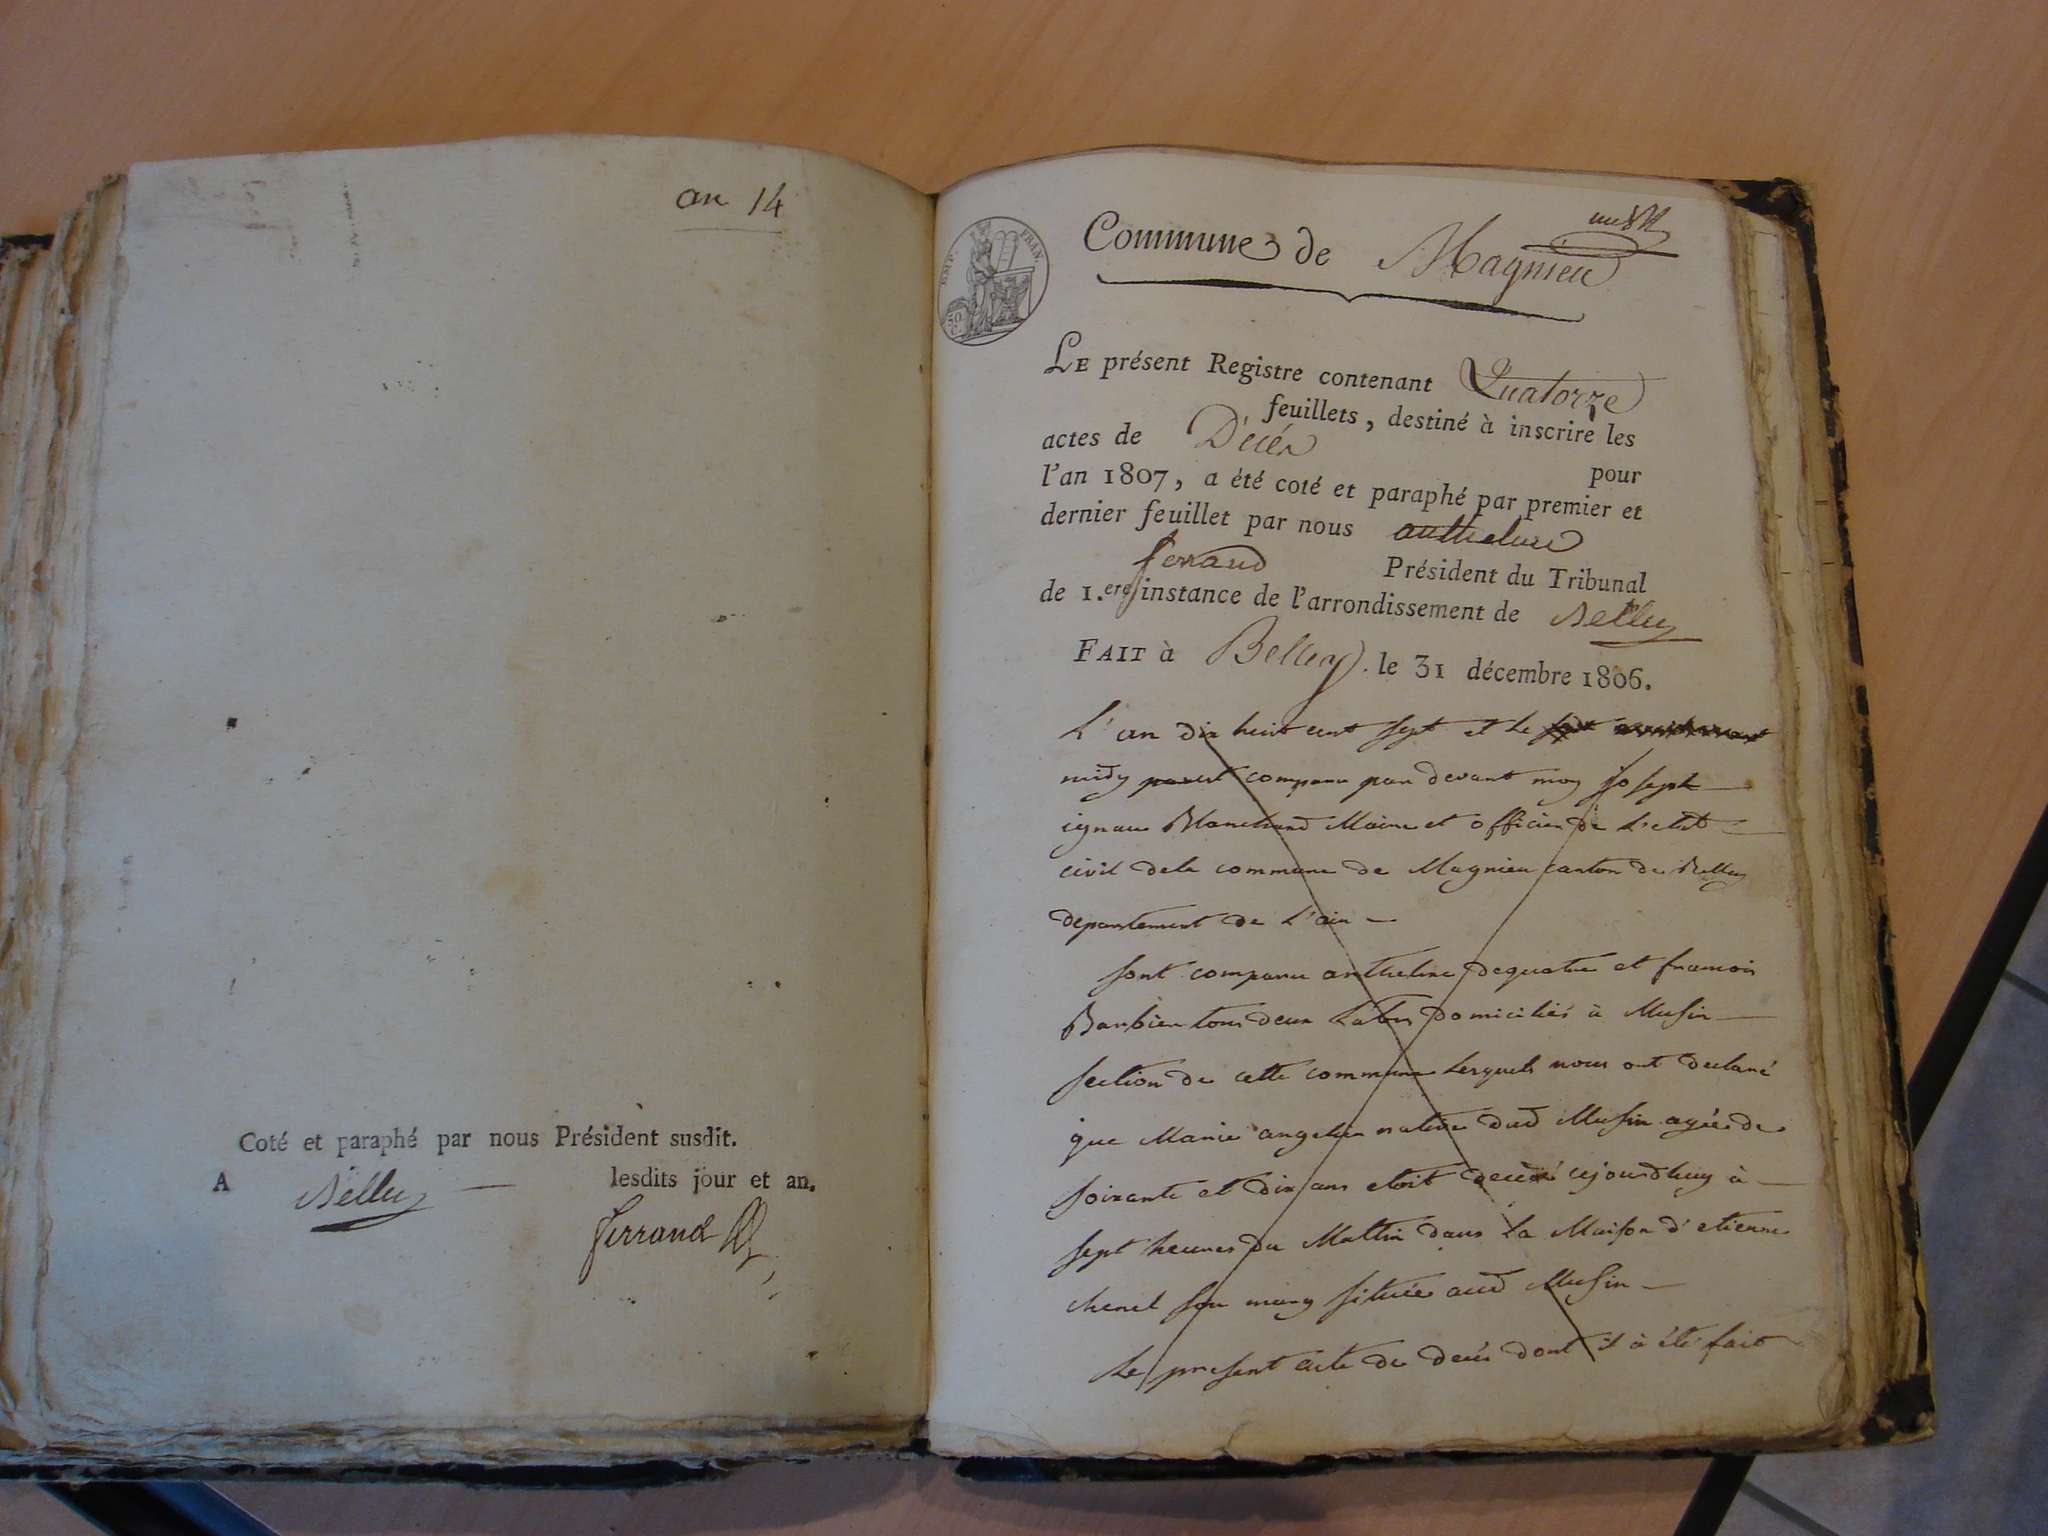 an 14
Coté et paraphé par nous Président susdit.
A Belley lesdits jour et an.
ferrand
EMP. FRAN.
50 C.
Commune de Magnieu
LE présent Registre contenant Quatorze
feuillets, destiné à inscrire les
actes de Décés pour
l'an 1807, a été coté et paraphé par premier et
dernier feuillet par nous anthelme
ferrand Président du Tribunal
de 1.ere instance de l'arrondissement de Belley
FAIT à Belley. le 31 décembre 1806.
L'an dix huit cent sept et le
midy est comparu par devant moy Joseph
ignace Blanchard Maire et officier de L'etat
civil dela commune de Magnieu canton de Belley
departement de L'ain
sont comparu anthelme dequatre et francois
Barbier tous deux Labrs domiciliés à Musin
section de cette commune Lesquels nous ont declaré
que Marie native dud Musin agée de
soixante et dix ans etoit decedé cejourdhuy à
sept heures du Mattin dans La Maison d'etienne
chenel son mary située aud Musin
Le present acte de decés dont il à été fait